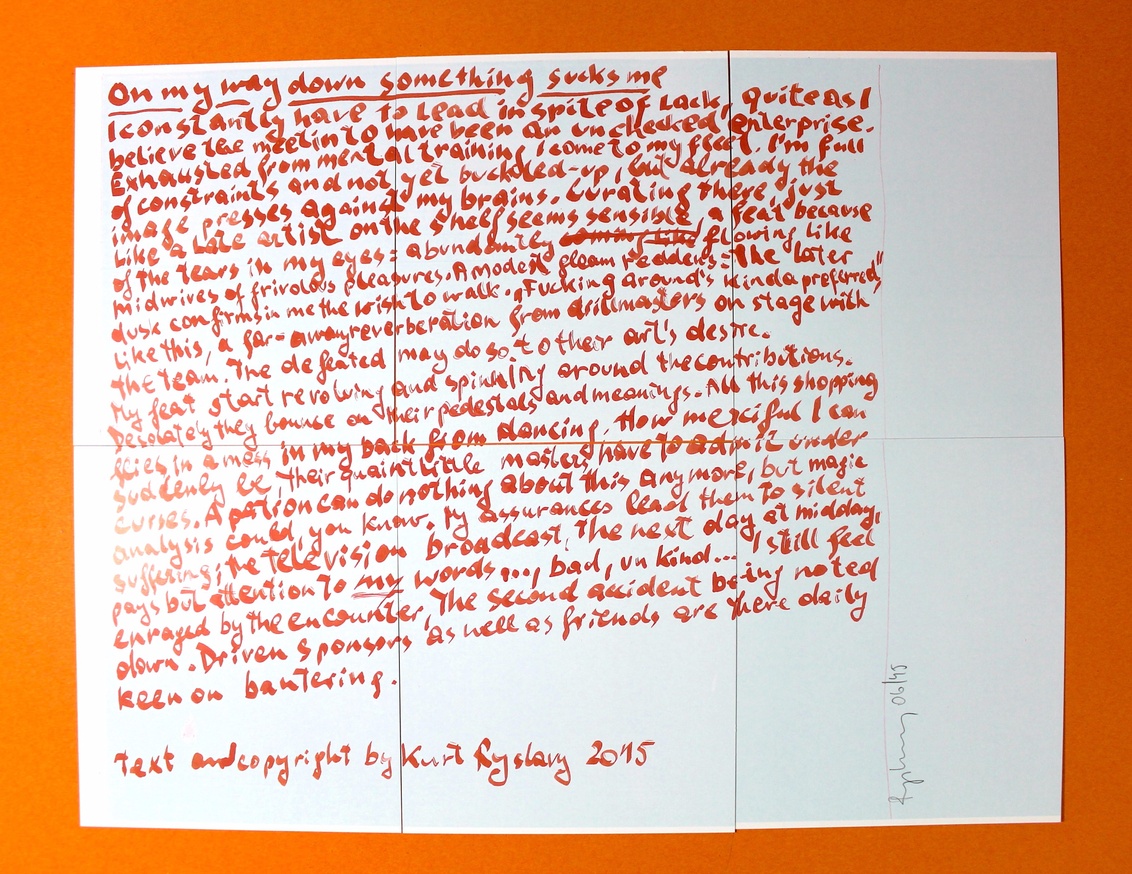 On my way down something sucks me
I constantly have to lead in spite of lack, quite as I
believe the meetin to have been an unchecked enterprise.
Exhausted from mental training I come to my feet. I'm full
of constraints and not yet buckoled-up, but already the
image presses against my brains. Curating there, just
like a late artist on the shelf seems sensible, a feat because
of the tears in my eyes: abundantly coming like flowing like
midwives of frivolous pleasures. A modest gleam reddens: The later
dusk confirms in me the wish to walk. „Fucking around's kinda preferred"
like this, a far-away reverberation from drillmasters on stage with
the team. The defeated may do so to their art's desire.
My feat start revolving and spinning around the contributions.
Desolately they bounce on their pedestals and meanings. All this shopping
flies in a mess in my back from dancing. How merciful I can
suddenly be, their quaint little masters have to admit under
curses. A petion can do nothing about this anymore, but magic
analysis could, you know. My assurances lead them to silent
suffering; the television broadcast, the next day at midday,
pays but attention to my words..., bad, unkind... I still feel
enraged by the encounter, The second accident being noted
down. Driven sponsors as well as friends are there daily
keen on bantering.
Text and copyright by Kurt Ryslavy 2015
06/15